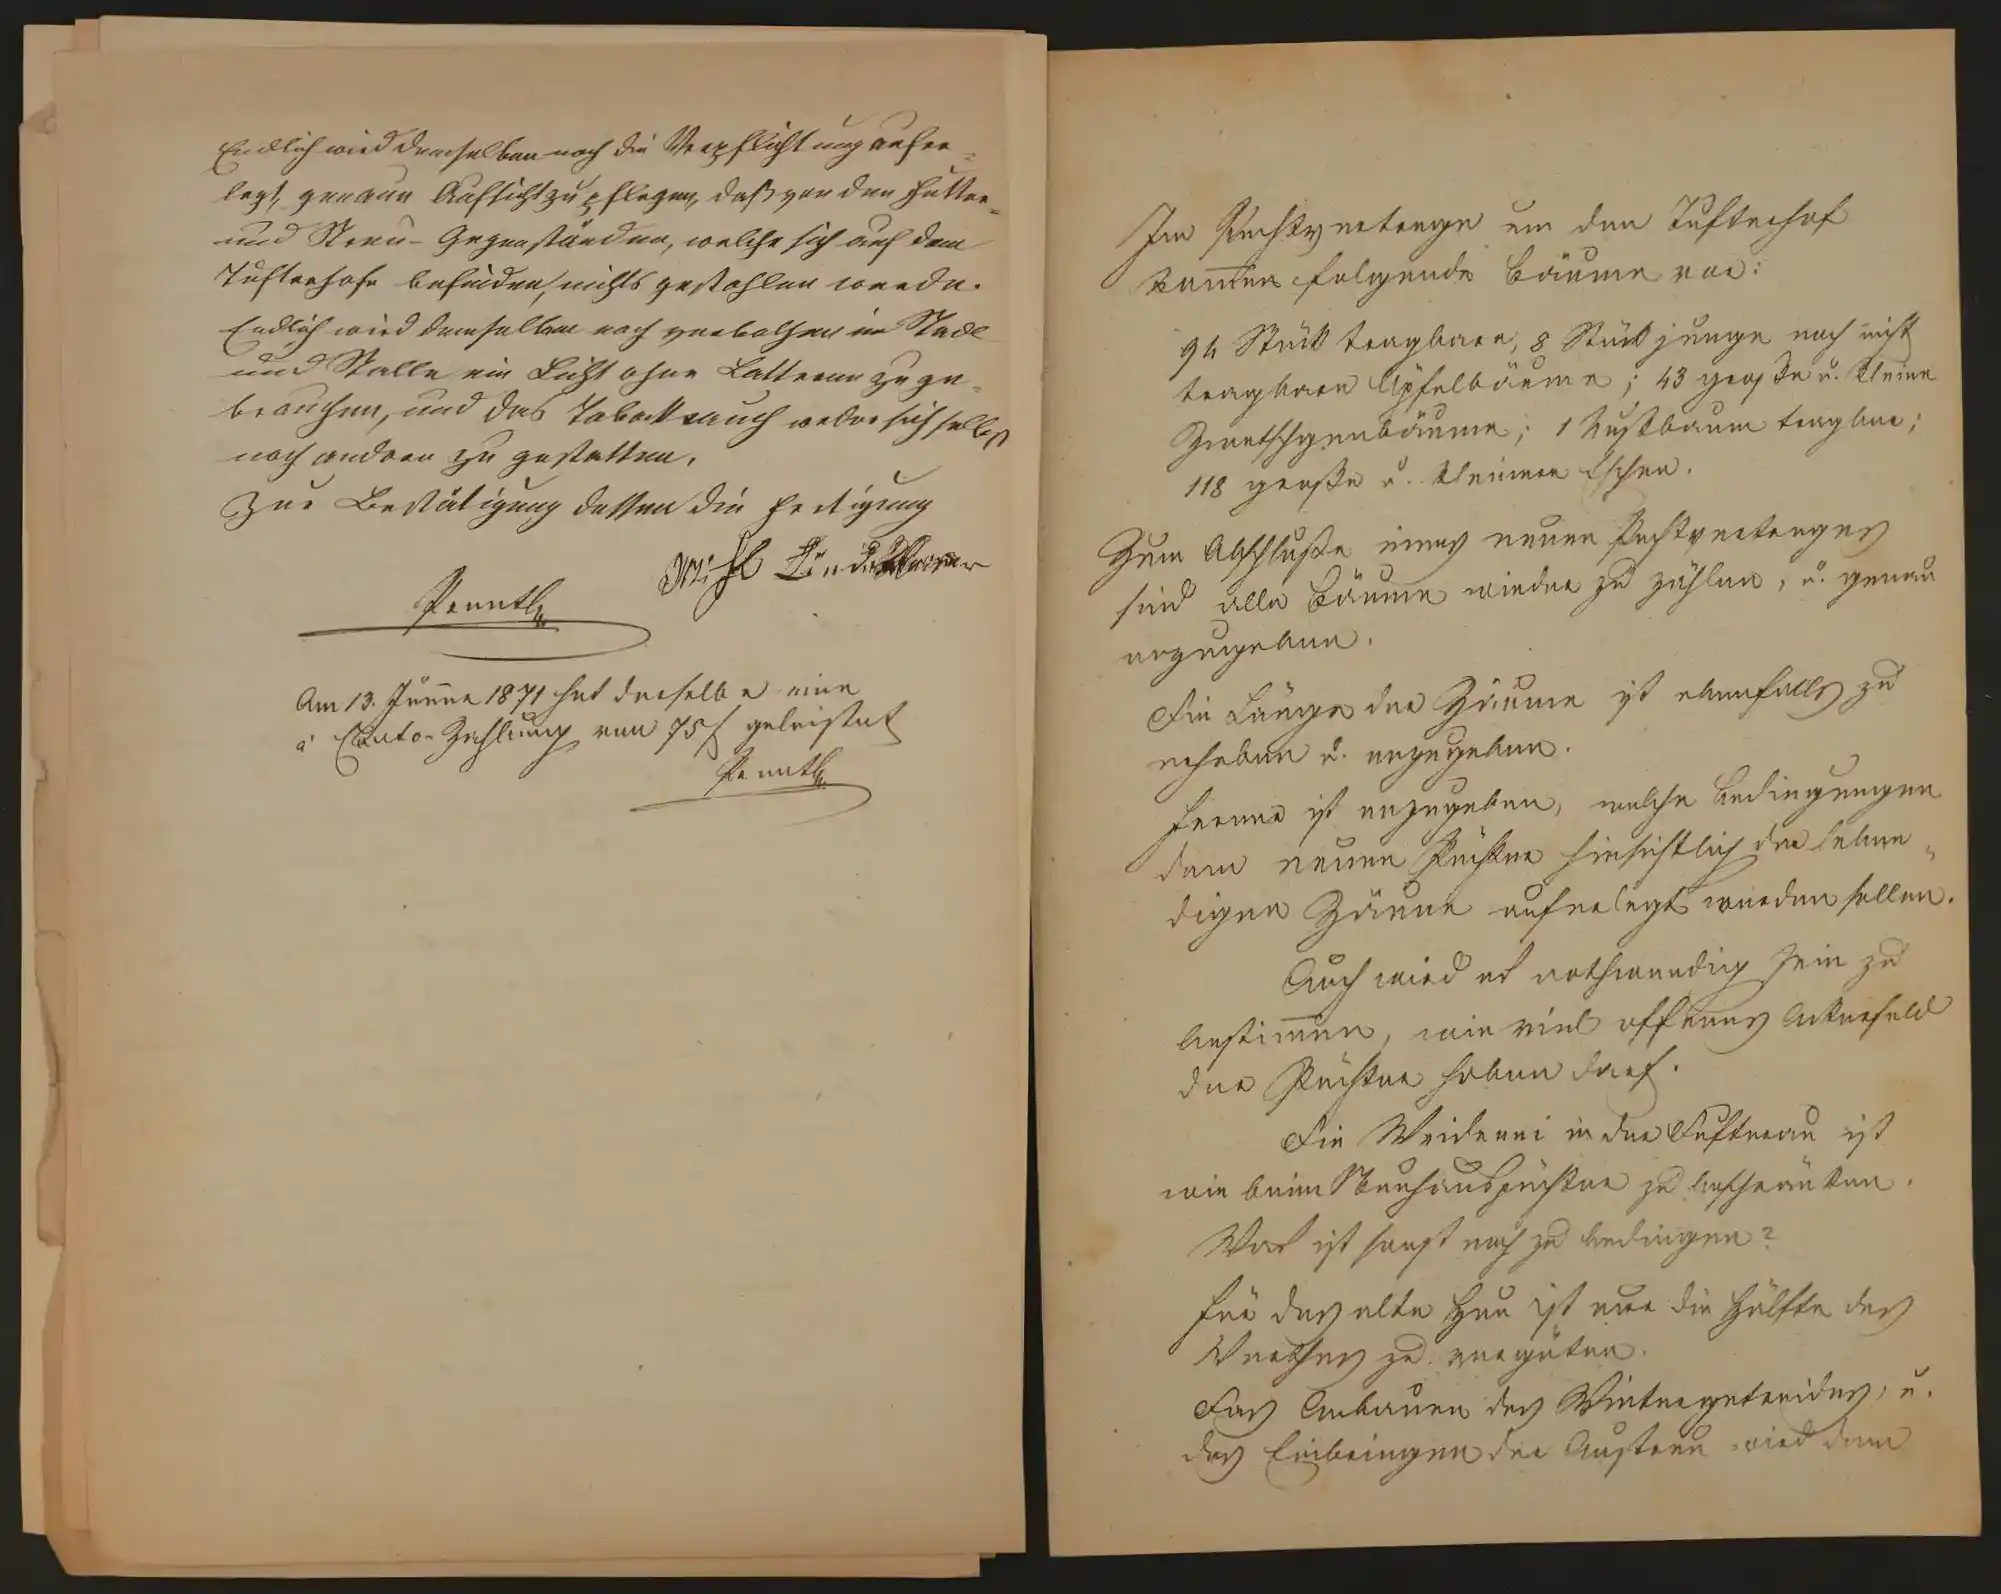 Endlich wird demselben noch die Verpflichtung aufer-
legt, genaue Aufsicht zu pflegen, daß von den Futter-
und Streu-Gegenständen, welche sich auf dem
Tufterhofe befinden, nichts gestohlen werde.
Endlich wird demselben noch verbothen im Stadl
und Stalle ein Licht ohne Latterne zu ge-
brauchen, und das Taback rauch weder sich selbst
noch andern zu gestatten.
Zur Bestätigung dessen die Fertigung
Michl
Am 13. Jänner 1871 hat derselbe eine
á Conto-Zahlung von 75 f geleistet
Im Pachtvertrage um den Tufterhof
kommen folgende Bäume vor:
94 Stück tragbare, 8 Stück junge noch nicht
tragbare Äpfelbäume; 43 große u. kleine
Zwetschgenbäume; 1 Nußbaum tragbar;
118 große u. kleinere Eschen.
Zum Abschluße eines neuen Pachtvertrages
sind alle Bäume wieder zu zählen, u. genau
anzugeben.
Die Länge der Zäune ist ebenfalls zu
erheben u. anzugeben.
Ferner ist anzugeben, welche Bedingungen
dem neuen Pächter hinsichtlich der leben-
digen Zäune auferlegt werden sollen.
Auch wird es nothwendig sein zu
bestimmen, wie viel offenes Ackerfeld
der Pächter haben darf.
Die Weiderei in der Tufterau ist
wie beim Neuhauspächter zu beschränken.
Was ist sonst noch zu bedingen?
Für das alte Heu ist nur die Hälfte des
Werthes zu vergüten.
Das Anbauen des Wintergetreides, u.
das Einbringen der Austreu wird dem